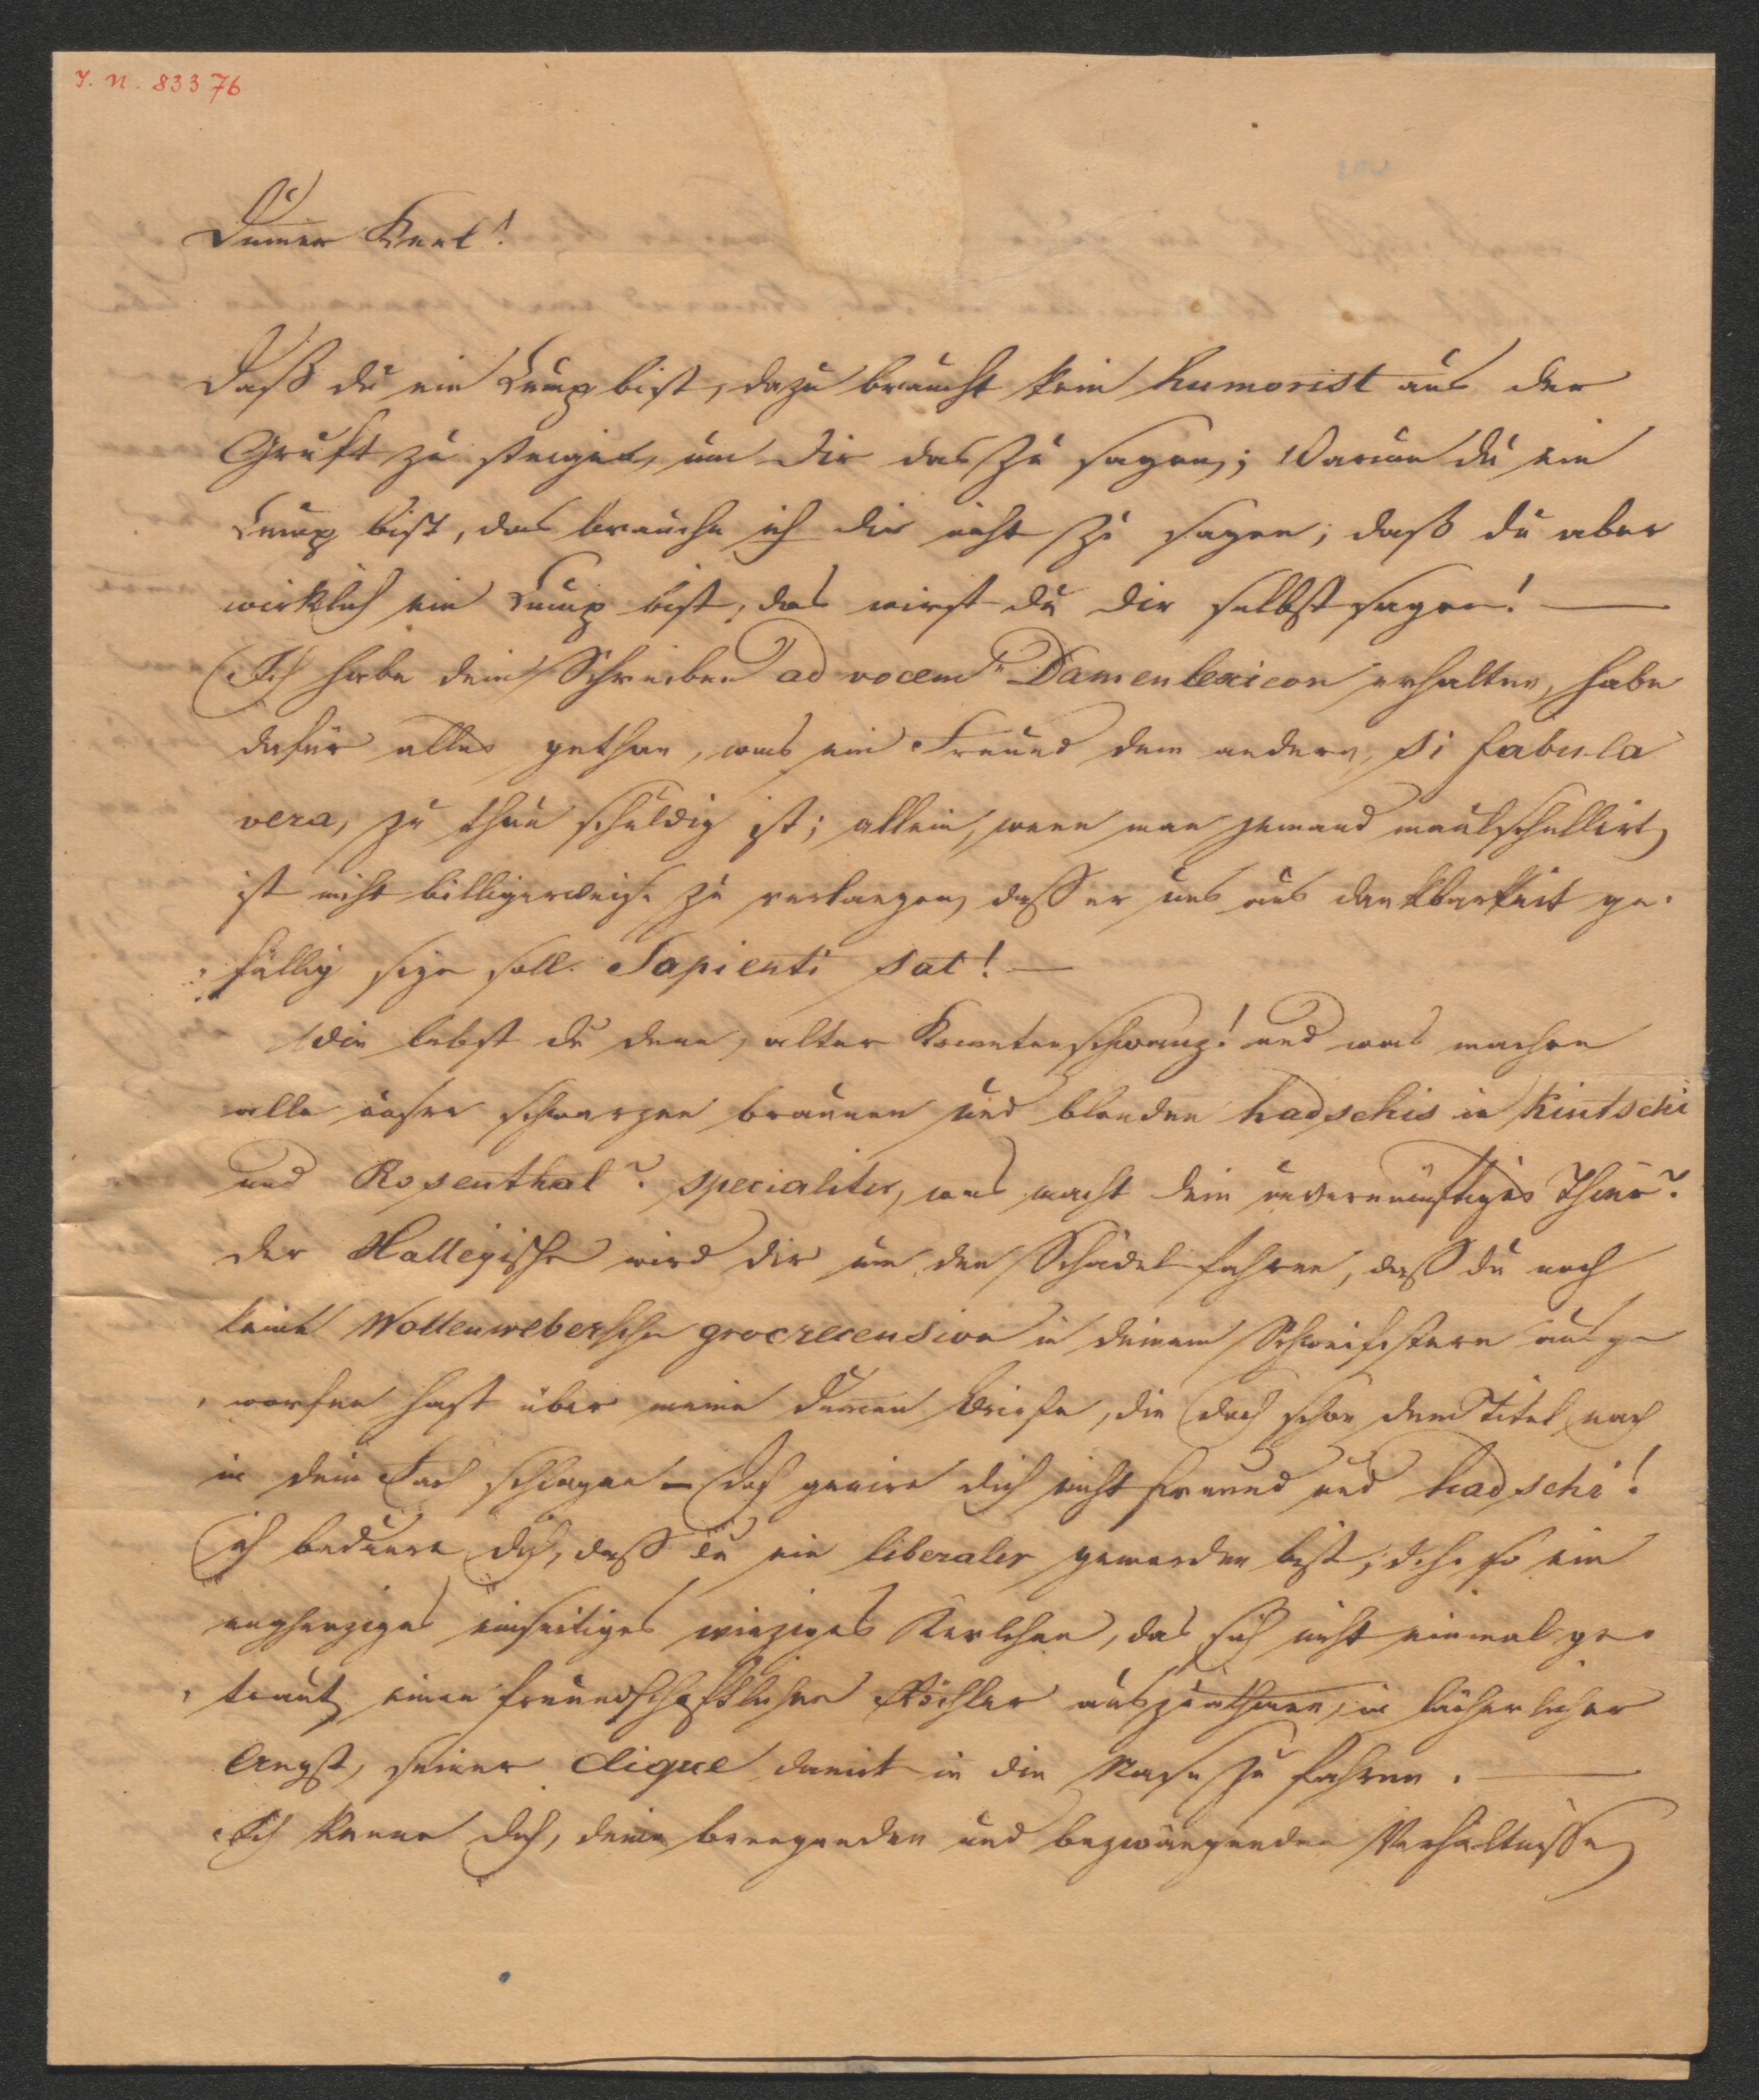 I. N. 83376
Dummer Kerl!
Daß du ein Lump bist, dazu braucht kein Humorist aus der
Gruft zu steigen, um dir das zu sagen; Warum du ein
Lump bist, das brauche ich dir nicht zu sagen; daß du aber
wirklich ein Lump bist, das wirst du dir selbst sagen! —
Ich habe dein Schreiben ad vocem „Damenlexicon erhalten, habe
dafür alles gethan, was ein Freund dem andern, si fabula
vera, zu thun schuldig ist; allein, wenn man jemand maulschellirt,
ist nicht billigerweise zu verlangen, daß er uns aus dankbarkeit ge-
fällig seyn soll. Sapienti sat! —
Wie lebst du denn, alter Kometenschwanz! und was machen
alle unsre schwarzen braunen und blonden hadschis in Kintschi
und Rosenthal? specialiter, was macht dein unvernünftiges Thier?
der Hallegische wird dir um den Schädel fahren, daß du noch
keine Wollenwebersche recension in deinem Schweifstern ausge
worfen hast über meine dummen Briefe, die doch schon dem Titel nach
in dein Fach schlagen — doch genire dich nicht freund und hadschi!
ich bedaure dich, daß du ein liberaler geworden bist, d. h. so ein
engherziges einseitiges winziges Kerlchen, das sich nicht einmal ge-
traut, einen freundschaftlichen auszuathmen, in lächerlicher
Angst, seiner clique damit in die Nase zu fahren. —
Ich kenne dich, deine beengenden und bezwängenden Verhältnisse,